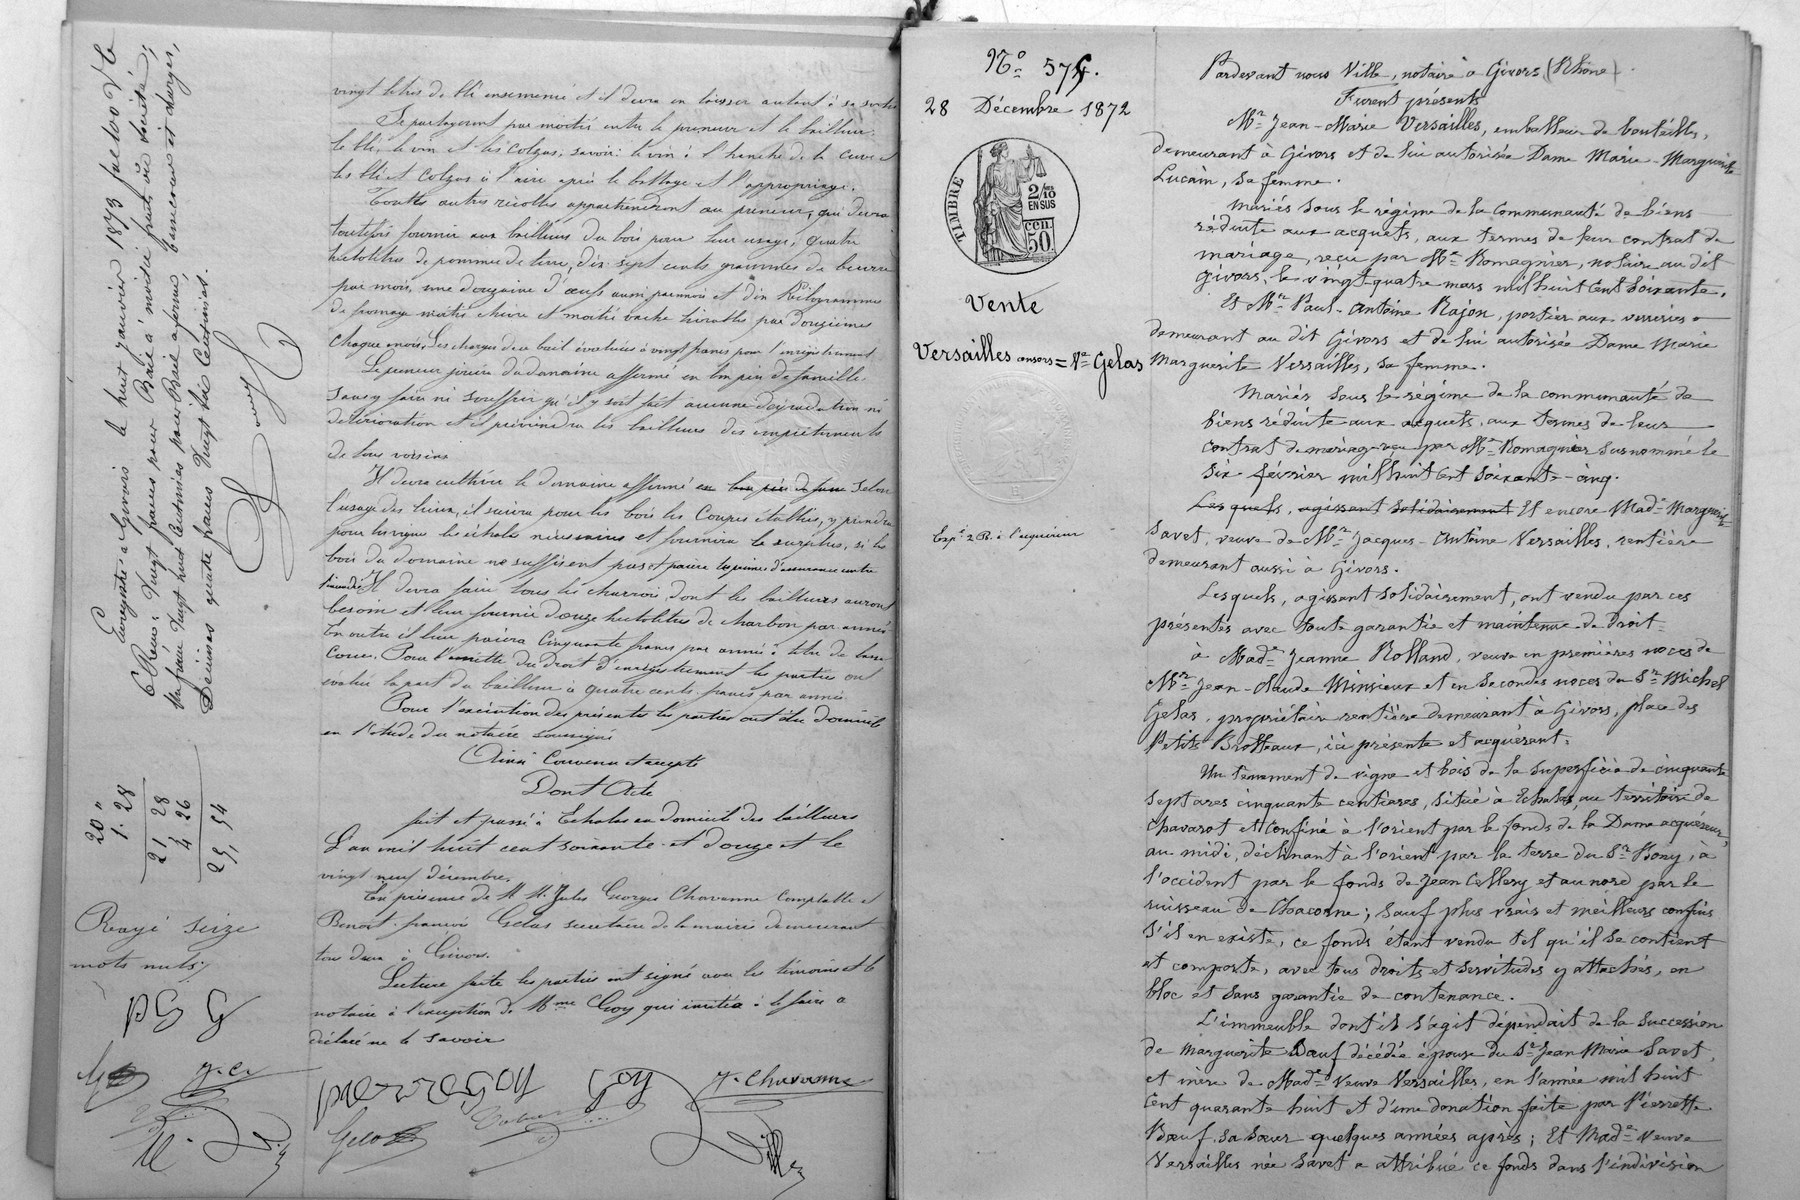 vingt litres de blé ensemencé et il devra en laisser autant à sa sortie
Se partageront par moitié entre le preneur et le bailleur
le blé, le vin et les colzas, savoir: le vin à l'hanche de la cuve et
les blé et Colzas à l'aire après le battage et l'appropriage.
Toutes autres récoltes appartiendront au preneur, qui devra
toutefois fournir aux bailleurs du bois pour leur usage, quatre
hectolitres de pommes de terre, dix sept cents grammes de beurre
par mois, une douzaine d'œufs aussi par mois et dix Kilogrammes
de fromage moitié chèvre et moitié vache livrables par douzièmes
chaque mois. Les charges de ce bail évaluées à vingt francs pour l'enregistrement
Le preneur jouira du domaine affermé en bon père de famille
sans y faire ni souffrir qu'il y soit fait aucune dégradation ni
détérioration et il préviendra les bailleurs des empiètements
de tous voisins
Il devra cultiver le domaine affermé en bon père de fam selon
l'usage des lieux, il suivra pour les bois les Coupes établies, y prendra
pour les vignes les échalas nécessaires et fournira le surplus, si les
bois du domaine ne suffisent pas et paiera les primes d'assurance contre
l'incendie Il devra faire tous les charrois dont les bailleurs auront
besoin et leur fournir douze hectolitres de charbon par année
En outre il leur paiera Cinquante francs par année à titre de basse
cour. Pour l'assiette du droit d'enregistrement les parties ont
évalué la part du bailleur à quatre cents francs par année
Pour l'exécution des présentes les parties ont élu domicile
en l'étude du notaire soussigné
Ainsi Convenu et accepté
Dont Acte
fait et passé à Echalas au domicile des bailleurs
L'an mil huit cent soixante et douze et le
vingt neuf décembre.
En présence de M.M. Jules Georges Chavanne Comptable et
Benoit françois Gelas secrétaire de la mairie demeurant
tous deux à Givors.
Lecture faite les parties ont signé avec les témoins et le
notaire à l'exception de Mme Goy qui invitée à le faire a
déclaré ne le savoir
pierre Goy Goy J. Chavanne
Gelas
Ville
Enregistré à Givors le huit janvier 1873 folio 100 Vo
Reçu: Vingt francs pour Bail à moitié fruits ou
Un franc Vingt huit Centimes pour Bail à ferme, et charges,
Décimes quatre francs Vingt six Centimes.
20 "
1. 28
21 28
4 26
25,54
Rayé seize
mots nuls
PG G
J. C
No 574.
28 Décembre 1872
TIMBRE
2/10 EN SUS
CEN. 50.
Vente
Versailles consors = Ve Gelas
Expé 2 R. à l'acquéreur
Pardevant nous Ville, notaire à Givors (Rhône)
Furent présents
Mr Jean-Marie Versailles, emballeur de bouteilles,
demeurant à Givors et de lui autorisée Dame Marie-Marguerite
Lucain, sa femme.
Mariés sous le régime de la Communauté de biens
réduite aux acquets, aux termes de leur contrat de
mariage, reçu par Me Romagnier, notaire au dit
Givors, le vingt quatre mars mil huit Cent Soixante.
Et Mr Paul-Antoine Rajon, portier aux verreries
demeurant au dit Givors et de lui autorisée Dame Marie
Marguerite Versailles, sa femme.
Mariés sous le régime de la communauté de
biens réduite aux acquets, aux termes de leur
contrat de mariage reçu par Me Romagnier susnommé le
six février mil huit Cent Soixante-cinq.
Lesquels, agissant solidairement Et encore Made Marguerite
Savet, veuve de Mr Jacques-Antoine Versailles, rentière
demeurant aussi à Givors.
Lesquels, agissant solidairement, ont vendu par ces
présentes avec toute garantie et maintenue de droit
à Made Jeanne Rolland, veuve en premières noces de
Mr Jean-Claude Minsieux et en secondes noces du Sr Michel
Gelas, propriétaire rentière demeurant à Givors, place des
Petits Brotteaux, ici présente et acquérant.
Un tènement de vigne et bois de la superficie de cinquante
sept ares cinquante centiares, situé à Echalas, au territoire de
Chavarot et confiné à l'orient par le fonds de la Dame acquéreur,
au midi, déclinant à l'orient par la terre du Sr Bony, à
l'occident par le fonds de Jean Cellery et au nord par le
ruisseau de Chaconne; sauf plus vrais et meilleurs confins
s'il en existe, ce fonds étant vendu tel qu'il se contient
et comporte, avec tous droits et servitudes y attachés, en
bloc et sans garantie de contenance.
L'immeuble dont il s'agit dépendait de la succession
de Marguerite Bœuf décédée épouse du Sr Jean Marie Savet,
et mère de Made Veuve Versailles, en l'année mil huit
Cent quarante huit et d'une donation faite par Pierrette
Bœuf sa sœur quelques années après; Et Made Veuve
Versailles née Savet a attribué ce fonds dans l'indivision